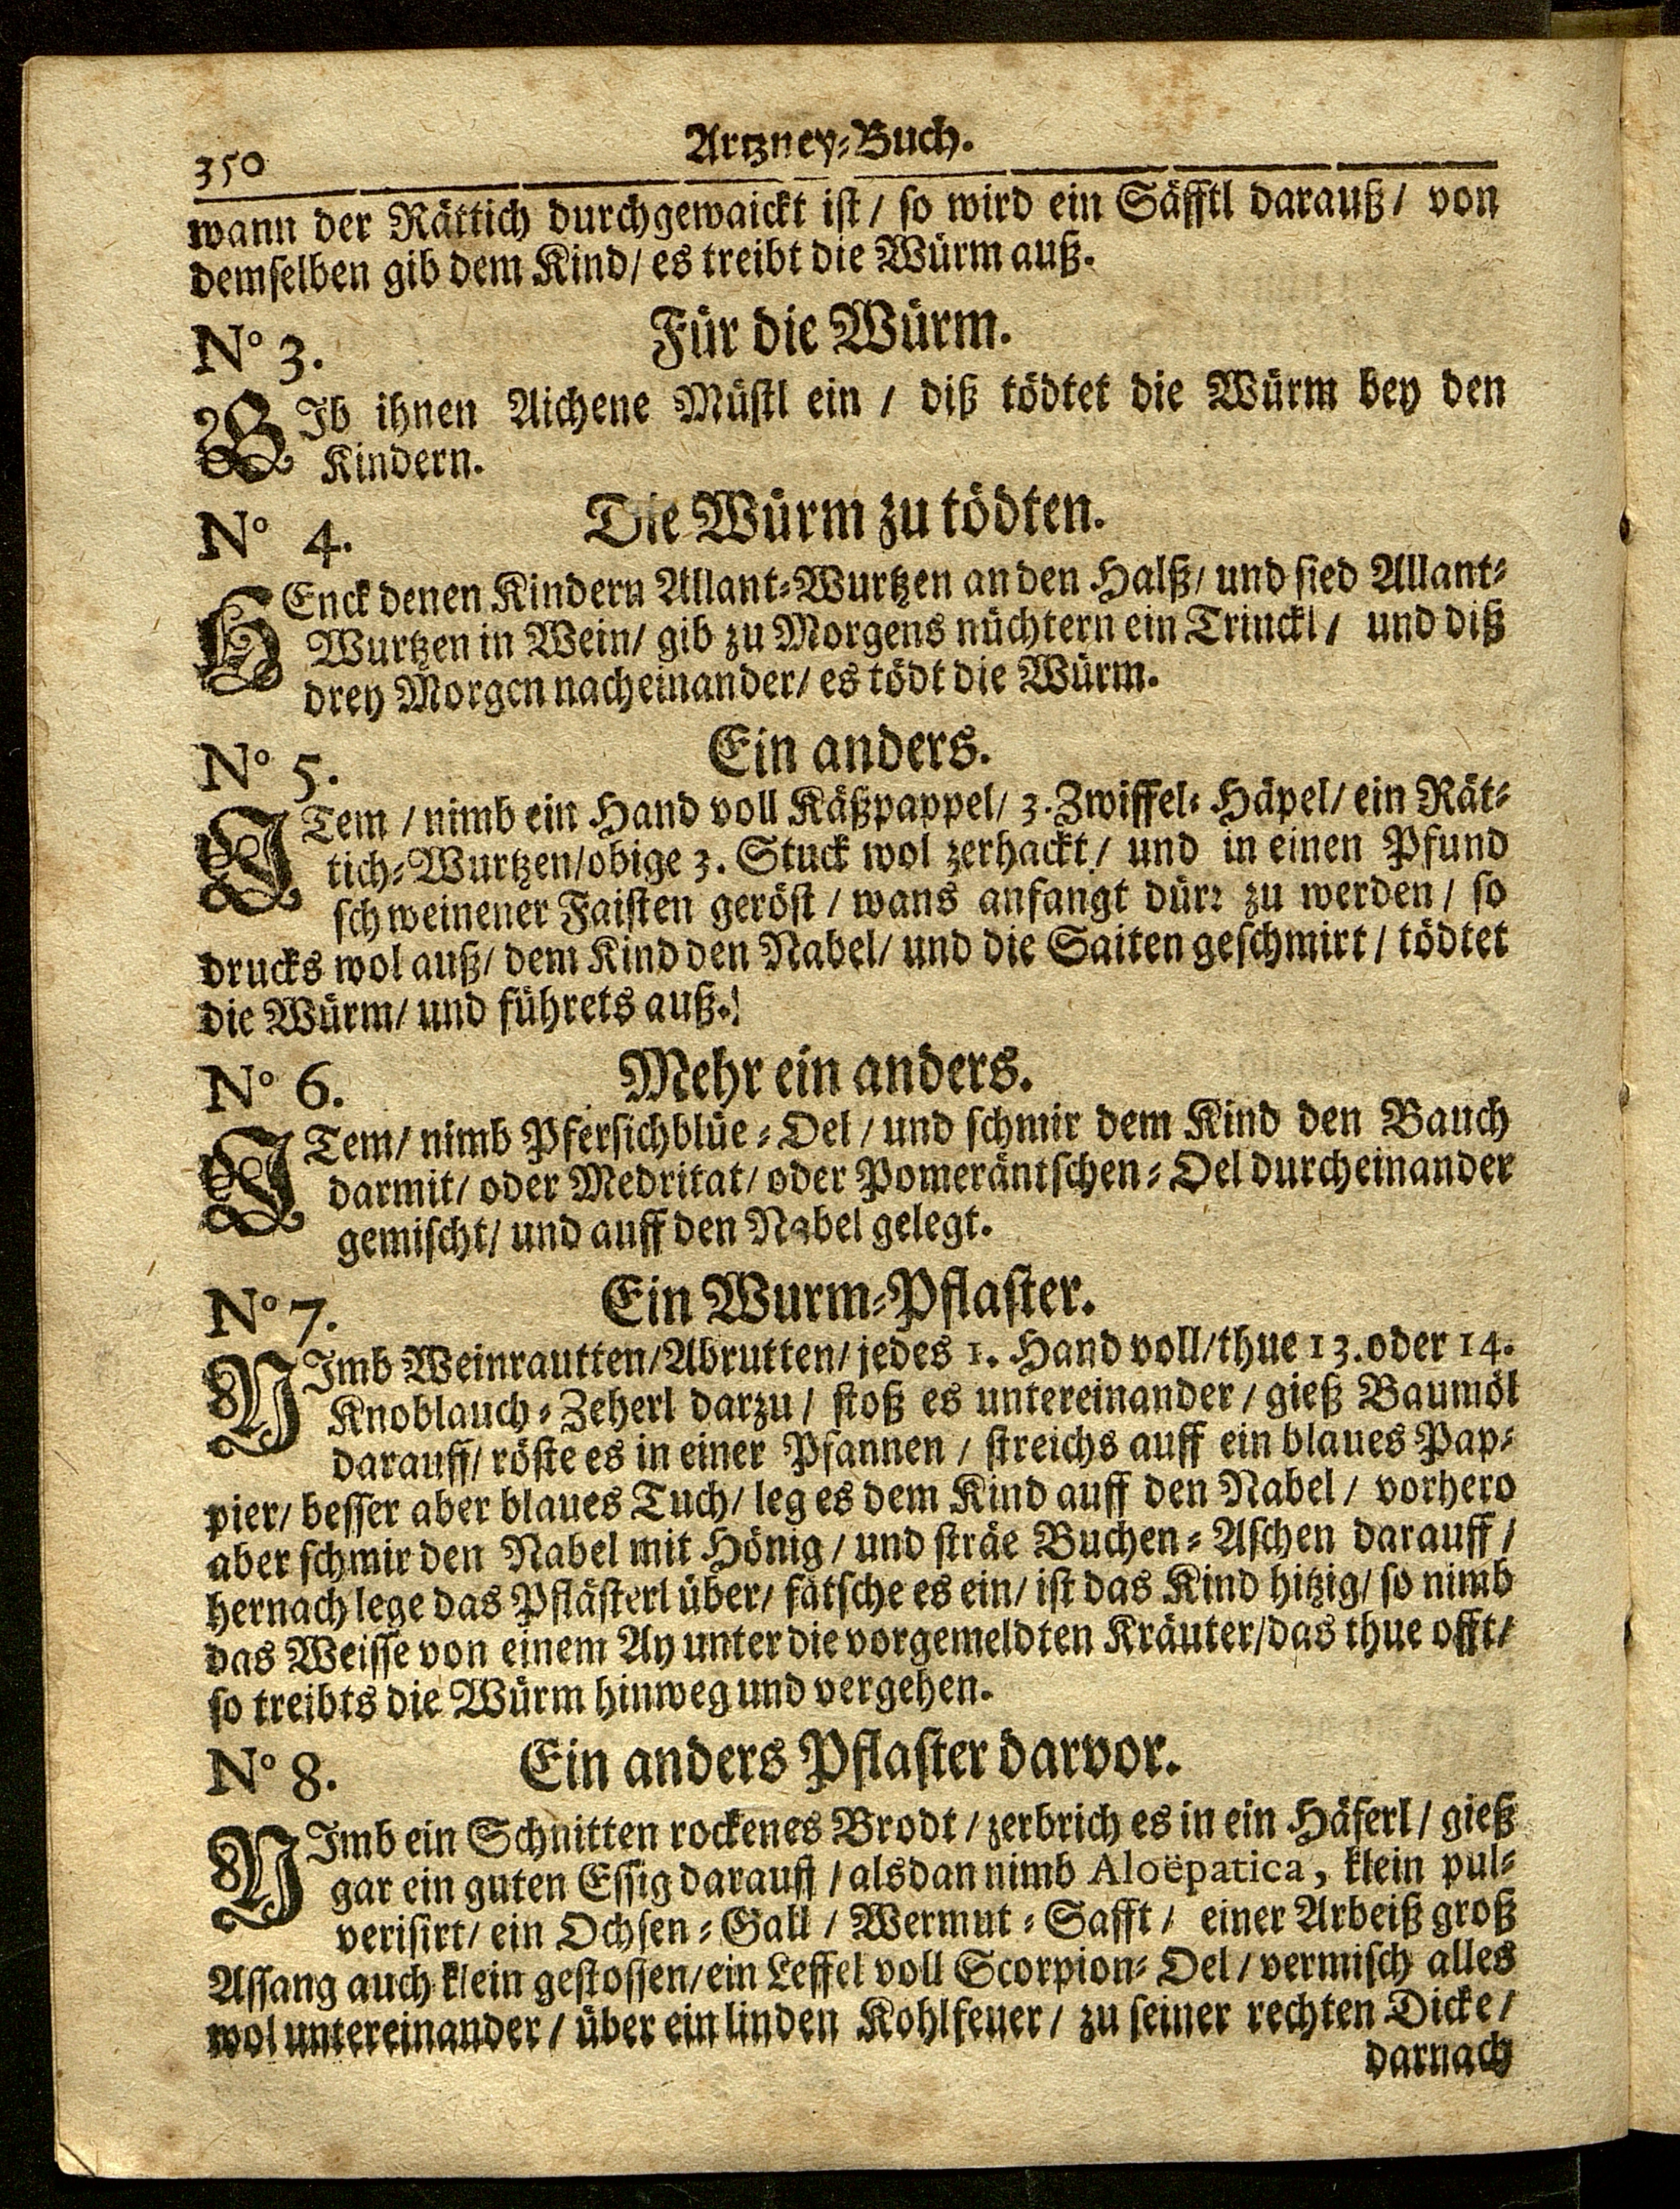 350
Artzney-Buch.
wann der Rättich durchgewaickt ist / so wird ein Säfftl darauß / von
demselben gib dem Kind / es treibt die Würm auß.
Nº 3. Für die Würm.
GIb ihnen Aichene Müstl ein / diß tödtet die Würm bey den
Kindern.
Nº 4. Die Würm zu tödten.
HEnck denen Kindern Allant-Wurtzen an den Halß / und sied Allant-
Wurtzen in Wein / gib zu Morgens nüchtern ein Trinckl / und diß
drey Morgen nacheinander / es tödt die Würm.
Nº 5. Ein anders.
ITem / nimb ein Hand voll Käßpappel / 3. Zwiffel-Häpel / ein Rät-
tich-Wurtzen / obige 3. Stuck wol zerhackt / und in einen Pfund
schweinener Faisten geröst / wans anfangt dürr zu werden / so
drucks wol auß / dem Kind den Nabel / und die Saiten geschmirt / tödtet
die Würm / und führets auß.
Nº 6. Mehr ein anders.
ITem / nimb Pfersichblüe-Oel / und schmir dem Kind den Bauch
darmit / oder Medritat / oder Pomeräntschen-Oel durcheinander
gemischt / und auff den Nabel gelegt.
Nº 7. Ein Wurm-Pflaster.
NImb Weinrautten / Abrutten / jedes 1. Hand voll / thue 13. oder 14.
Knoblauch-Zeherl darzu / stoß es untereinander / gieß Baumöl
darauff / röste es in einer Pfannen / streichs auff ein blaues Pap-
pier / besser aber blaues Tuch / leg es dem Kind auff den Nabel / vorhero
aber schmir den Nabel mit Hönig / und sträe Buchen-Aschen darauff /
hernach lege das Pflästerl über / fätsche es ein / ist das Kind hitzig / so nimb
das Weisse von einem Ay unter die vorgemeldten Kräuter / das thue offt /
so treibts die Würm hinweg und vergehen.
Nº 8. Ein anders Pflaster darvor.
NImb ein Schnitten rockenes Brodt / zerbrich es in ein Häferl / gieß
gar ein guten Essig darauff / alsdan nimb Aloëpatica, klein pul-
verisirt / ein Ochsen-Gall / Wermut-Safft / einer Arbeiß groß
Assang auch klein gestossen / ein Leffel voll Scorpion-Oel / vermisch alles
wol untereinander / über ein linden Kohlfeuer / zu seiner rechten Dicke /
darnach